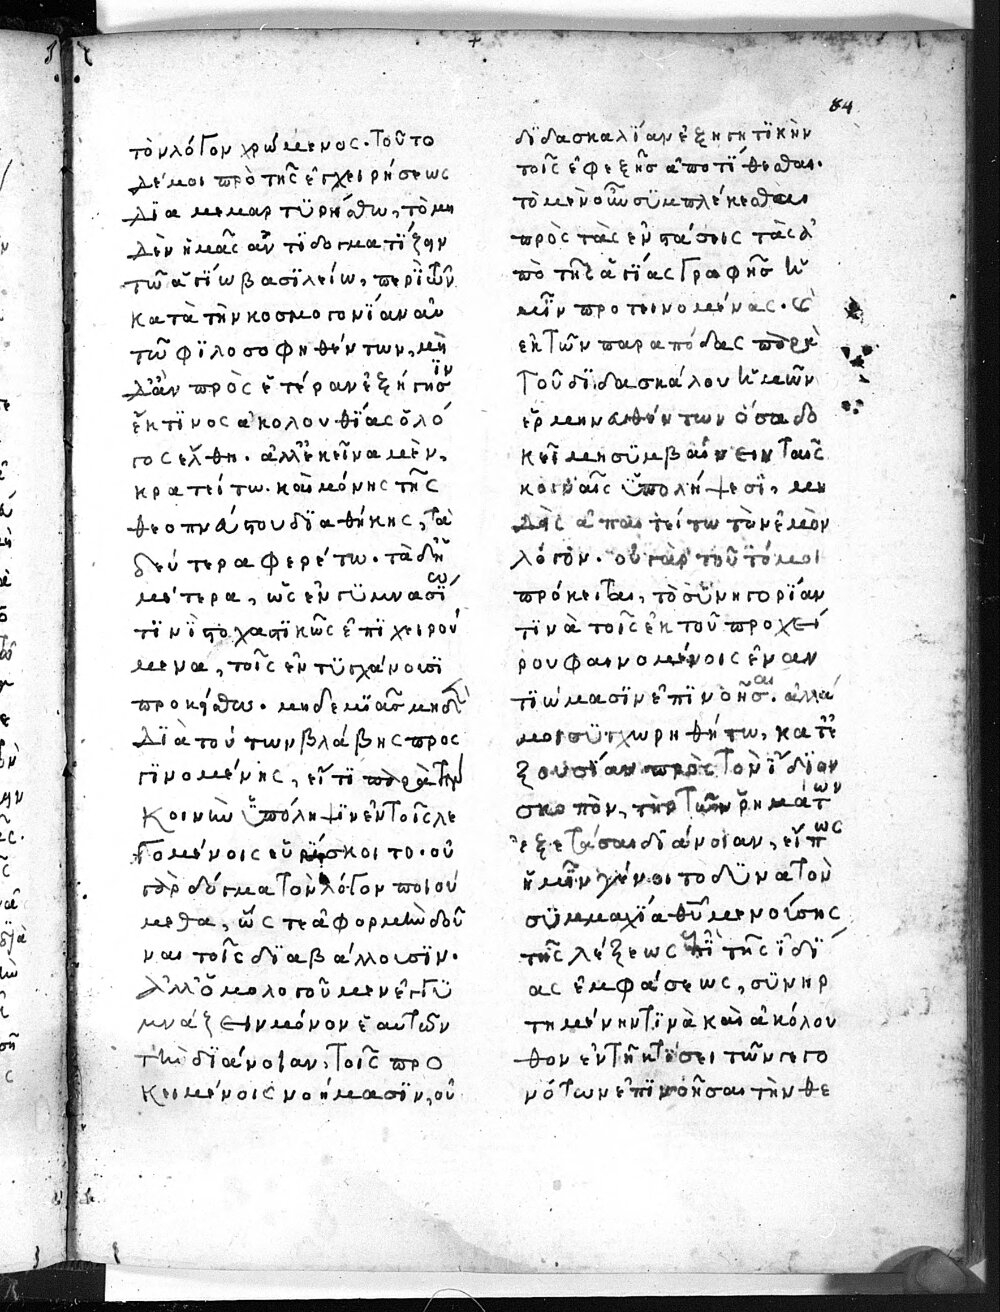 84
τὸν λόγον χρώμενος. τοῦτο
δέ μοι πρὸ τῆς ἐγχειρήσεως
διαμεμαρτϋρήσθω, τὸ μη
δὲν ἡμᾶς ἀντιδογματίζειν
τῶ ἁγίω βασϊλείω, περὶ τῶν
κατὰ τὴν κοσμογονίαν αὐ
τῶ φϊλοσοφηθέντων, μὴ
δ' ἂν πρὸς ἑτέραν ἐξήγησϊν
ἔκ τινος ἀκολουθίας ὁ λό
γος ἔλθη. ἀλλ' ἐκεῖνα μὲν,
κρατείτω. καὶ μόνης τῆς
θεοπνεύστου διαθήκης, τὰ
δευτερα φερέτω. τὰ δὲ ἡ
μέτερα, ὡς ἐν γϋμνασίω
τϊνὶ στοχαστϊκῶς ἐπϊχειρού
μενα, τοῖς ἐντϋγχάνουσϊ
προκείσθω. μηδεμϊᾶς μηδενὶ
διὰ τούτων βλάβης προς
γϊνομένης, εἴ τϊ παρὰ τὴν
κοινὴν ὑπόληψϊν ἐν τοῖς λε
γομένοις εὑρίσκοιτο. οὐ
γὰρ δόγμα τὸν λόγον ποιού
μεθα, ὥστε ἀφορμὴν δοῦ
ναι τοῖς διαβάλλουσϊν.
ἀλλ' ὁμολογοῦμεν ἐγγϋ
μνάζειν μόνον ἑαυτῶν
τὴν δϊάνοιαν, τοῖς προ
κειμένοις νοήμασϊν, οὐ
δϊδασκαλίαν ἐξηγητϊκὴν
τοῖς ἐφεξῆς ἀποτίθεσθαι.
τὸ μὲν οὖν σϋμπλέκεσθαι
πρὸς τὰς ἐνστάσεις τὰς ἀ
πὸ τῆς ἁγίας γραφῆς ἡ
μῖν προτεινομένας.
ἐκ τῶν παραπόδας παρὰ
τοῦ δϊδασκάλου ἡμῶν
ἑρμηνευθέντων ὅσα δο
κεῖ μὴ σϋμβαίνειν ταῖς
κοιναῖς ὑπολήψεσϊ, μη
δεὶς ἀπαιτείτω τὸν ἐμὸν
λόγον. οὐ γὰρ τοῦτό μοι
πρόκειται, τὸ σϋνηγορίαν
τϊνὰ τοῖς ἐκ τοῦ προχεί
ρου φαινομένοις ἐναν
τϊώμασϊν ἐπϊνοῆσαι. ἀλλά
μοι σϋγχωρηθήτω, κατ' ἐ
ξουσίαν πρὸς τὸν ἴδϊον
σκοπὸν, τὴν τῶν ῥημάτων
ἐξετάσαι δϊάνοιαν, εἴ πως
ἡμῖν γένοιτο δϋνατὸν
σϋμμαχία θῦ μενούσης
τῆς λέξεως ἐπὶ τῆς ἰδϊ
ας ἐμφάσεως, σϋνηρ
τημένην τϊνὰ καὶ ἀκόλου
θον ἐν τῆ κτίσει τῶν γεγο
νότων ἐπϊνοῆσαι τὴν θε